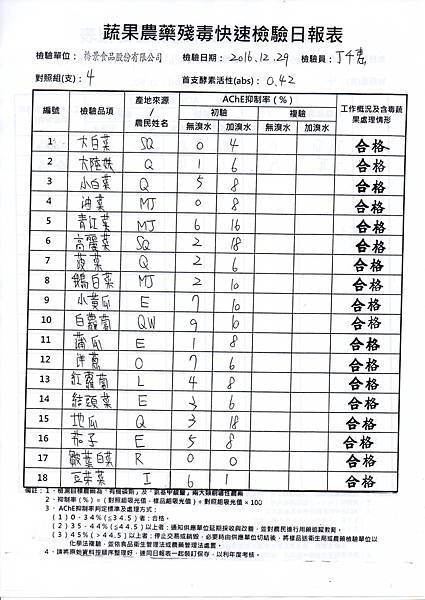 蔬果農藥殘毒快速檢驗日報表
檢驗單位： 裕景食品股份有限公司 檢驗日期： 2016.12.29 檢驗員：
對照組(支)： 4 首支酵素活性(abs)： 0.42
編號 檢驗品項 產地來源 / 農民姓名 AChE抑制率（%） 工作概況及含毒蔬果處理情形
初驗 複驗
無溴水 加溴水 無溴水 加溴水
1 大白菜 SQ 0 4 合格
2 大陸妹 Q 1 6 合格
3 小白菜 Q 5 8 合格
4 油菜 MJ 0 8 合格
5 青江菜 MJ 6 16 合格
6 高麗菜 SQ 2 18 合格
7 菠菜 Q 2 6 合格
8 鵝白菜 MJ 2 10 合格
9 小黃瓜 E 7 10 合格
10 白蘿蔔 QW 9 10 合格
11 蒲瓜 E 1 8 合格
12 洋蔥 O 7 6 合格
13 紅蘿蔔 L 4 8 合格
14 結頭菜 E 3 6 合格
15 地瓜 Q 3 18 合格
16 茄子 E 5 8 合格
17 皺葉白菜 R 0 0 合格
18 豆芽菜 I 6 1 合格
備註：1．檢測目標農藥為「有機磷劑」及「氨基甲酸鹽」兩大類耐毒性農藥
2．抑制率(%)＝(對照組吸光值－樣品組吸光值)÷對照組吸光值×100
3．AChE抑制率判定標準及處理方式：
(1) 0－34%(≦34.5)者：合格。
(2) 35－44%(≦44.5)以上者：通知供應單位延期採收與改善，並對農民進行用藥追蹤教育。
(3) 45%(＞44.5)以上者：停止交易或銷毀，必要時由供應單位切結後，將樣品送衛生局或農藥檢驗單位以
化學法複驗，並依食品衛生管理法或農藥管理法處置。
4．請將原始資料按順序整理好，連同日報表一起裝訂保存，以利年度考核。